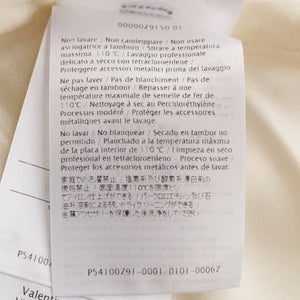 0000029150 01
Non lavare / Non candeggiare / Non usare
asciugatrice a tamburo / Stirare a temperatura
massima 110°C / Lavaggio professionale
delicato a secco con tetracloroetilene /
Proteggere accessori metallici prima del lavaggio
Ne pas laver / Pas de blanchiment / Pas de
séchage en tambour / Repasser à une
température maximale de semelle de fer de
110°C / Nettoyage à sec au Perchloréthylène
Processus modéré / Protéger les accessoires
métalliques avant le lavage.
No lavar / No blanquear / Secado en tambor no
permitido / Planchado a la temperatura máxima
de la placa interior de 110 °C / Limpieza en seco
profesional en tetracloroetileno - Proceso suave /
Proteger los accesorios metálicos antes de lavar.
家庭での洗濯禁止 / 塩素系及び酸素系漂白剤の
使用禁止 / 底面温度110℃を限度とし
てアイロン仕上げができる / パークロロエチレン及び石
油系溶剤による弱いドライクリーニングができる /
金属アクセサリーを保護した後洗浄をしてください
P5410079
P54100791-0001-0101-00067
Valenti